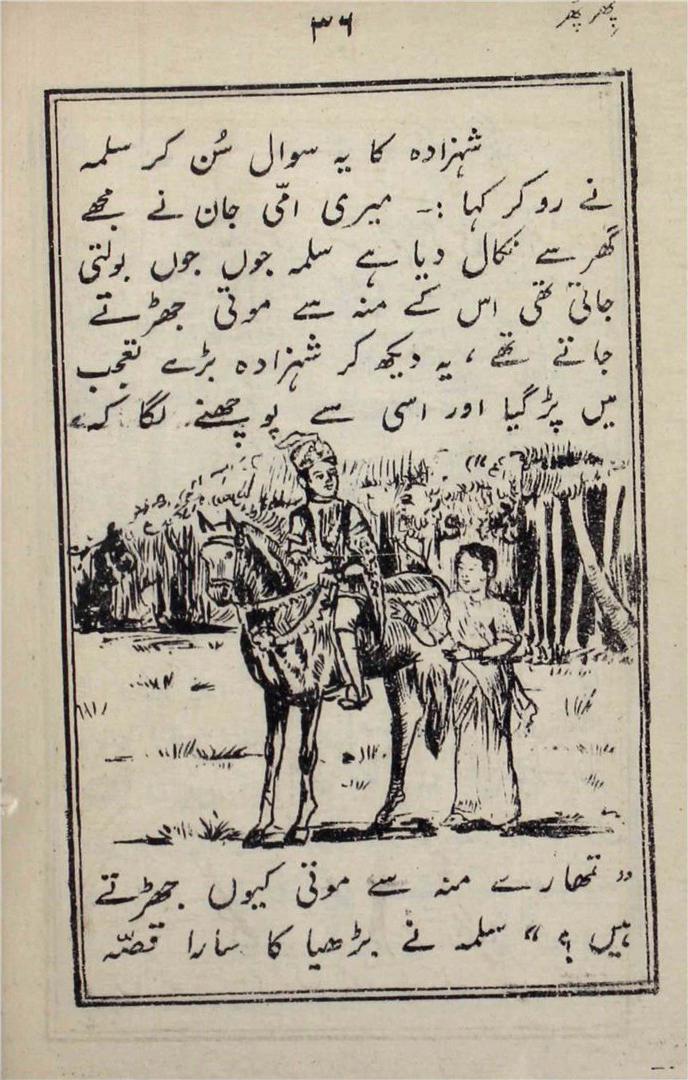 ۳۶
پھر پھر
شہزادہ کا یہ سوال سُن کر سلمہ
نے رو کر کہا :۔ میری امّی جان نے مجھے
گھر سے نکال دیا ہے سلمہ جوں جوں بولتی
جاتی تھی اس کے منہ سے موتی جھڑتے
جاتے تھے ، یہ دیکھ کر شہزادہ بڑے تعجب
میں پڑ گیا اور اسی سے پوچھنے لگا کہ
" تمھارے منہ سے موتی کیوں جھڑتے
ہیں ؟ " سلمہ نے بڑھیا کا سارا قصّہ